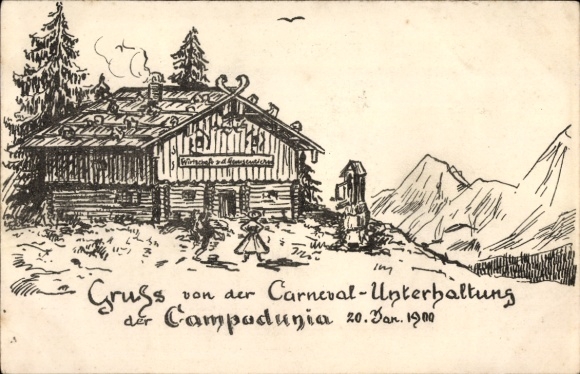 Wirtschaft z.d.
Gruss von der Carneval-Unterhaltung
der Campodunia 20. Jan. 1900